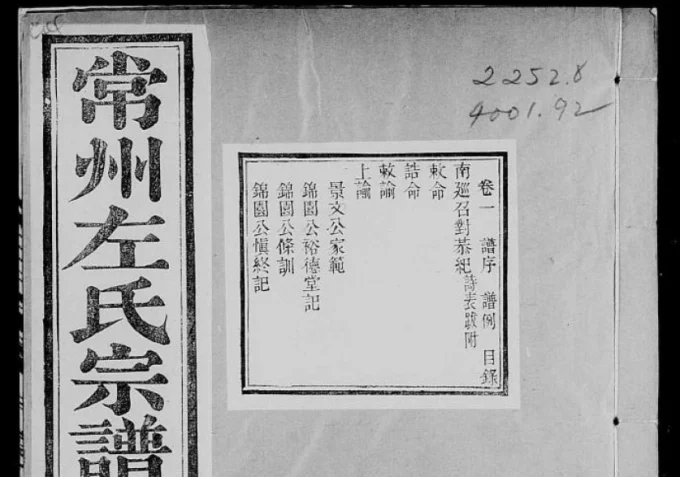 常州左氏宗譜
2252.8
4001.92
卷一 譜序 譜例 目錄
南廵召對恭紀詩表跋附
敕命
誥命
敕諭
上諭
景文公家範
錦園公裕德堂記
錦園公條訓
錦園公愼終記